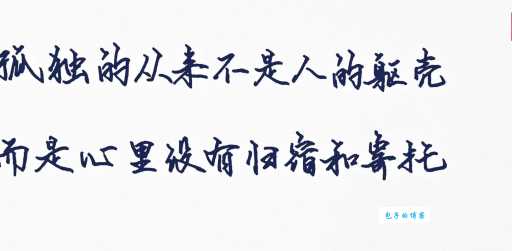 孤独的从来不是人的躯壳
而是心里没有归宿和寄托
包子的博客